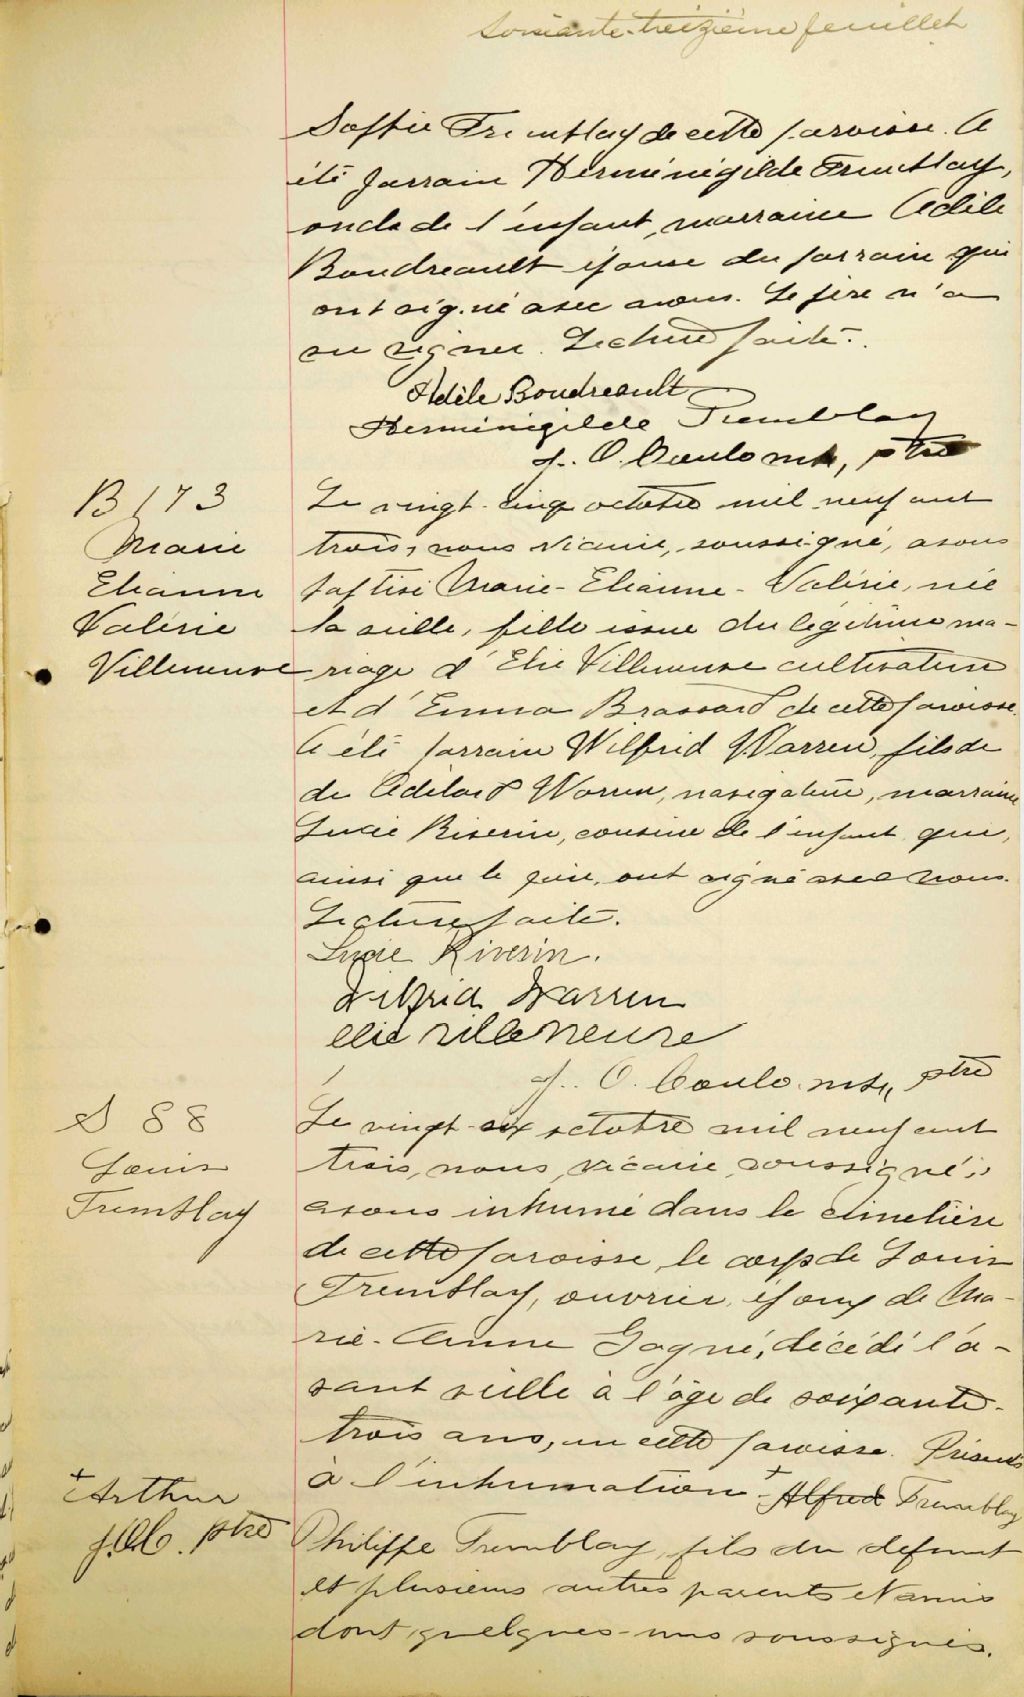 Soixante-treizième feuillet
Soffie Tremblay de cette paroisse. A
été parrain Herménégilde Tremblay,
oncle de l'enfant, marraine Adèle
Boudreault épouse du parrain qui
ont signé avec nous. Le père n'a
su signer. Lecture faite.
Adèle Boudreault
Herminigilde Tremblay
J. O. Coulombe, ptre
B 173
Marie
Elianne
Valérie
Villeneuve
Le vingt-cinq octobre mil neuf cent
trois, nous vicaire, soussigné, avons
baptisé Marie-Elianne-Valérie, née
la veille, fille issue du légitime ma-
riage d'Elie Villeneuve cultivateur
et d'Emma Brassard de cette paroisse.
A été parrain Wilfrid Warren, fils de
de Adélard Warren, navigateur, marraine
Lucie Riverin, cousine de l'enfant qui,
ainsi que le père, ont signé avec nous.
Lecture faite.
Lucie Riverin.
Wilfrid Warren
Elie Villeneuve
J. O. Coulombe, ptre
S 88
Louis
Tremblay
Le vingt-six octobre mil neuf cent
trois, nous, vicaire soussigné,
avons inhumé dans le cimetière
de cette paroisse, le corps de Louis
Tremblay, ouvrier, époux de Ma-
rie-Anne Gagné, décédé l'a-
vant veille à l'âge de soixante-
trois ans, en cette paroisse. Présents
à l'inhumation + Alfred Tremblay
+ Arthur
J.O.C. ptre
Philippe Tremblay, fils du defunt
et plusieurs autres parents et amis
dont quelques-uns soussignés.